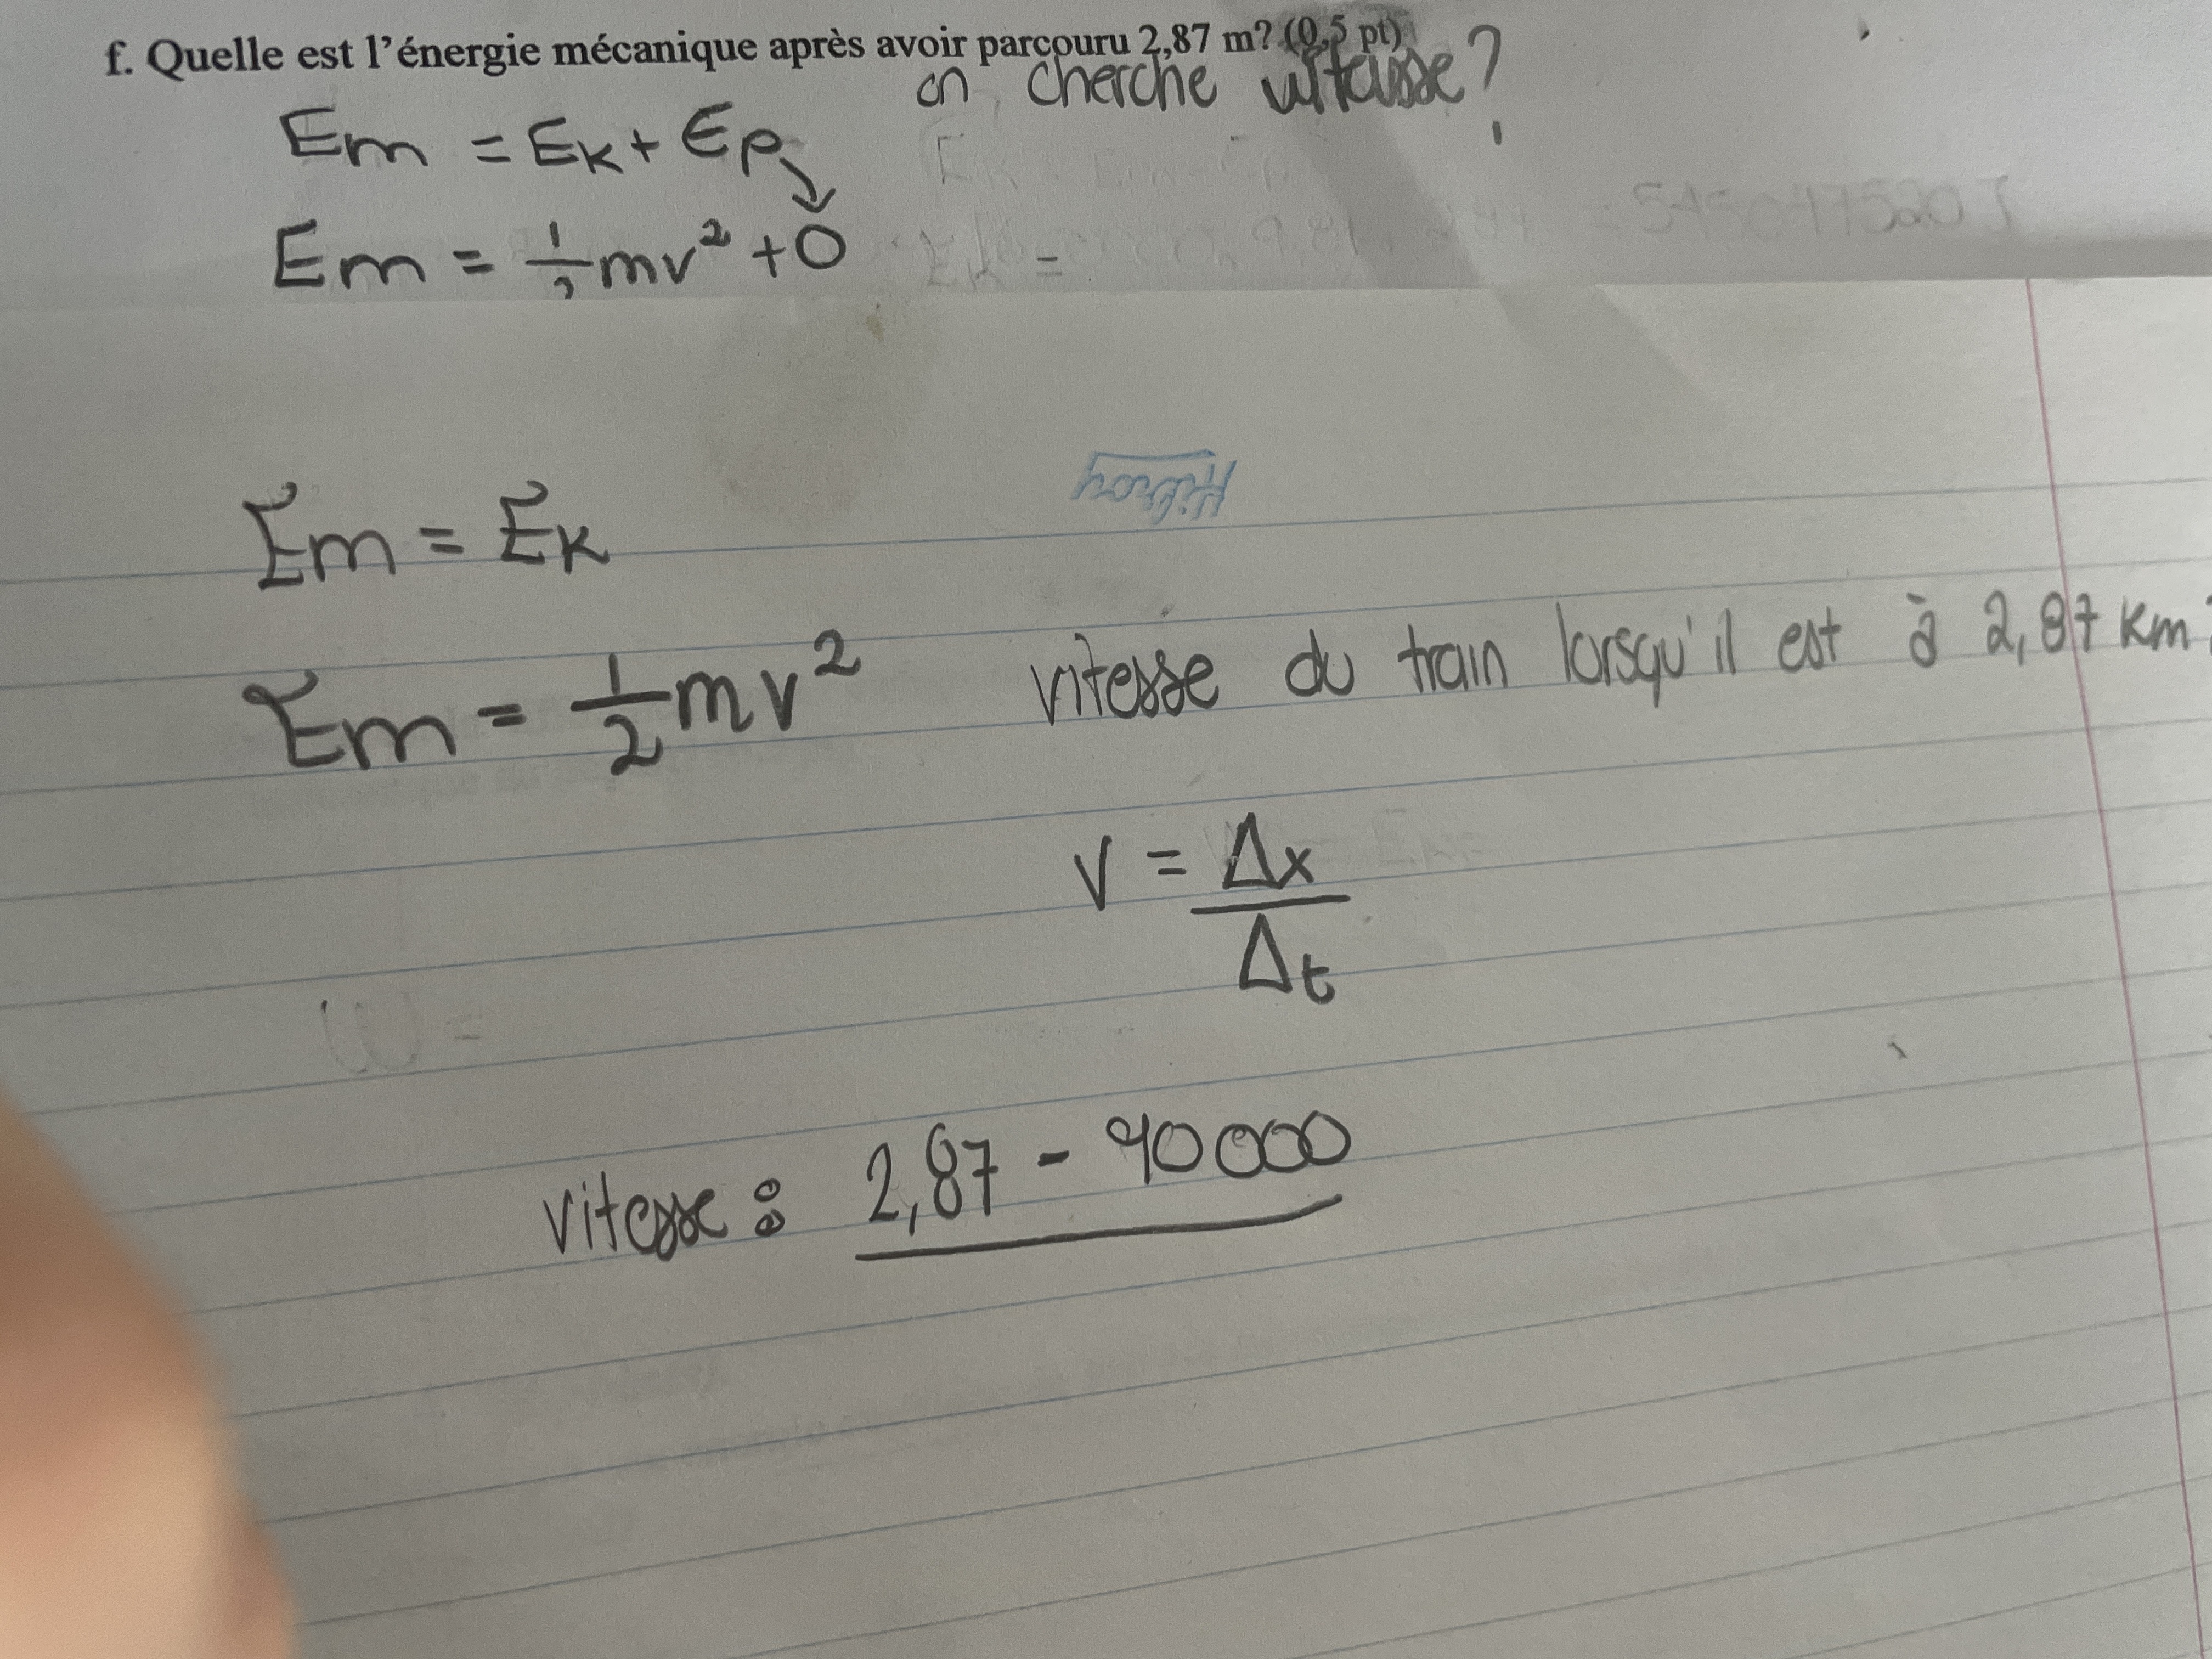 f. Quelle est l'énergie mécanique après avoir parcouru 2,87 m? (0,5 pt)
on cherche vitesse?
Em = Ek + Ep
Em = 1/2 mv² + 0
Em = Ek
Hilroy
Em = 1/2 mv²
vitesse du train lorsqu'il est à 2,87 km
v = Δx / Δt
vitesse : 2,87 - 90000